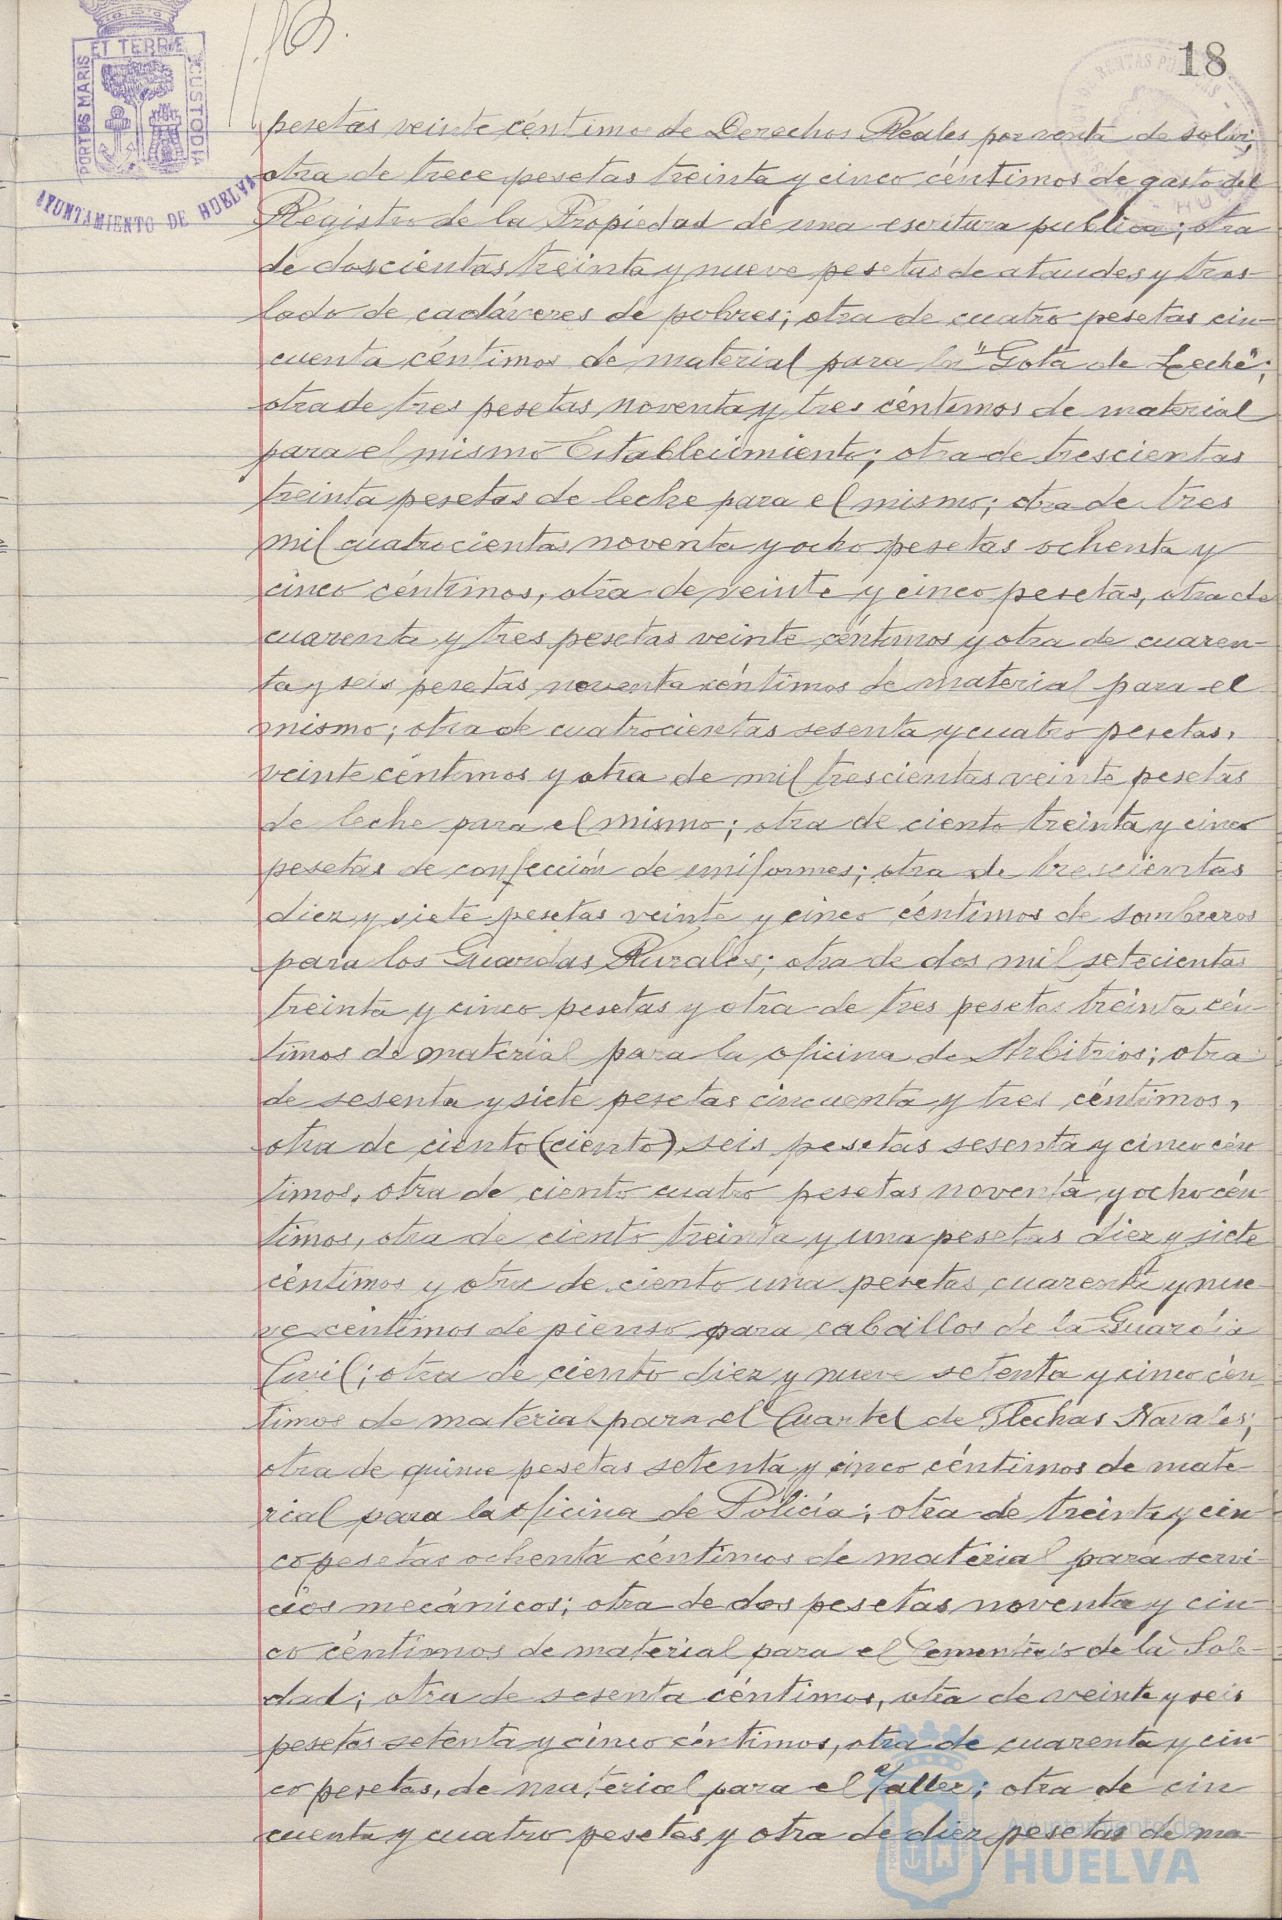 18
PORTUS MARIS ET TERRÆ CUSTODIA
AYUNTAMIENTO DE HUELVA
pesetas veinte céntimos de Derechos Reales por venta de solar;
otra de trece pesetas treinta y cinco céntimos de gasto del
Registro de la Propiedad de una escritura publica; otra
de doscientas treinta y nueve pesetas de ataudes y tras-
lado de cadáveres de pobres; otra de cuatro pesetas cin-
cuenta céntimos de material para la "Gota de Leche";
otra de tres pesetas noventa y tres céntimos de material
para el mismo Establecimiento; otra de trescientas
treinta pesetas de leche para el mismo; otra de tres
mil cuatrocientas noventa y ocho pesetas ochenta y
cinco céntimos, otra de veinte y cinco pesetas, otra de
cuarenta y tres pesetas veinte céntimos y otra de cuaren-
ta y seis pesetas noventa céntimos de material para el
mismo; otra de cuatrocientas sesenta y cuatro pesetas,
veinte céntimos y otra de mil trescientas veinte pesetas
de leche para el mismo; otra de ciento treinta y cinco
pesetas de confección de uniformes; otra de trescientas
diez y siete pesetas veinte y cinco céntimos de sombreros
para los Guardas Rurales; otra de dos mil setecientas
treinta y cinco pesetas y otra de tres pesetas treinta cén-
timos de material para la oficina de Arbitrios; otra
de sesenta y siete pesetas cincuenta y tres céntimos,
otra de ciento (ciento) seis pesetas sesenta y cinco cén
timos, otra de ciento cuatro pesetas noventa y ocho cén
timos, otra de ciento treinta y una pesetas diez y siete
céntimos y otra de ciento una pesetas cuarenta y nue-
ve centimos de pienso para caballos de la Guardia
Civil; otra de ciento diez y nueve setenta y cinco cén-
timos de material para el Cuartel de Flechas Navales;
otra de quince pesetas setenta y cinco céntimos de mate-
rial para la oficina de Policía; otra de treinta y cin-
co pesetas ochenta céntimos de material para servi-
cios mecánicos; otra de dos pesetas noventa y cin-
co céntimos de material para el Cementerio de la Sole-
dad; otra de sesenta céntimos, otra de veinte y seis
pesetas setenta y cinco céntimos, otra de cuarenta y cin-
co pesetas, de material para el Taller; otra de cin
cuenta y cuatro pesetas y otra de diez pesetas de ma-
Ayuntamiento de
HUELVA